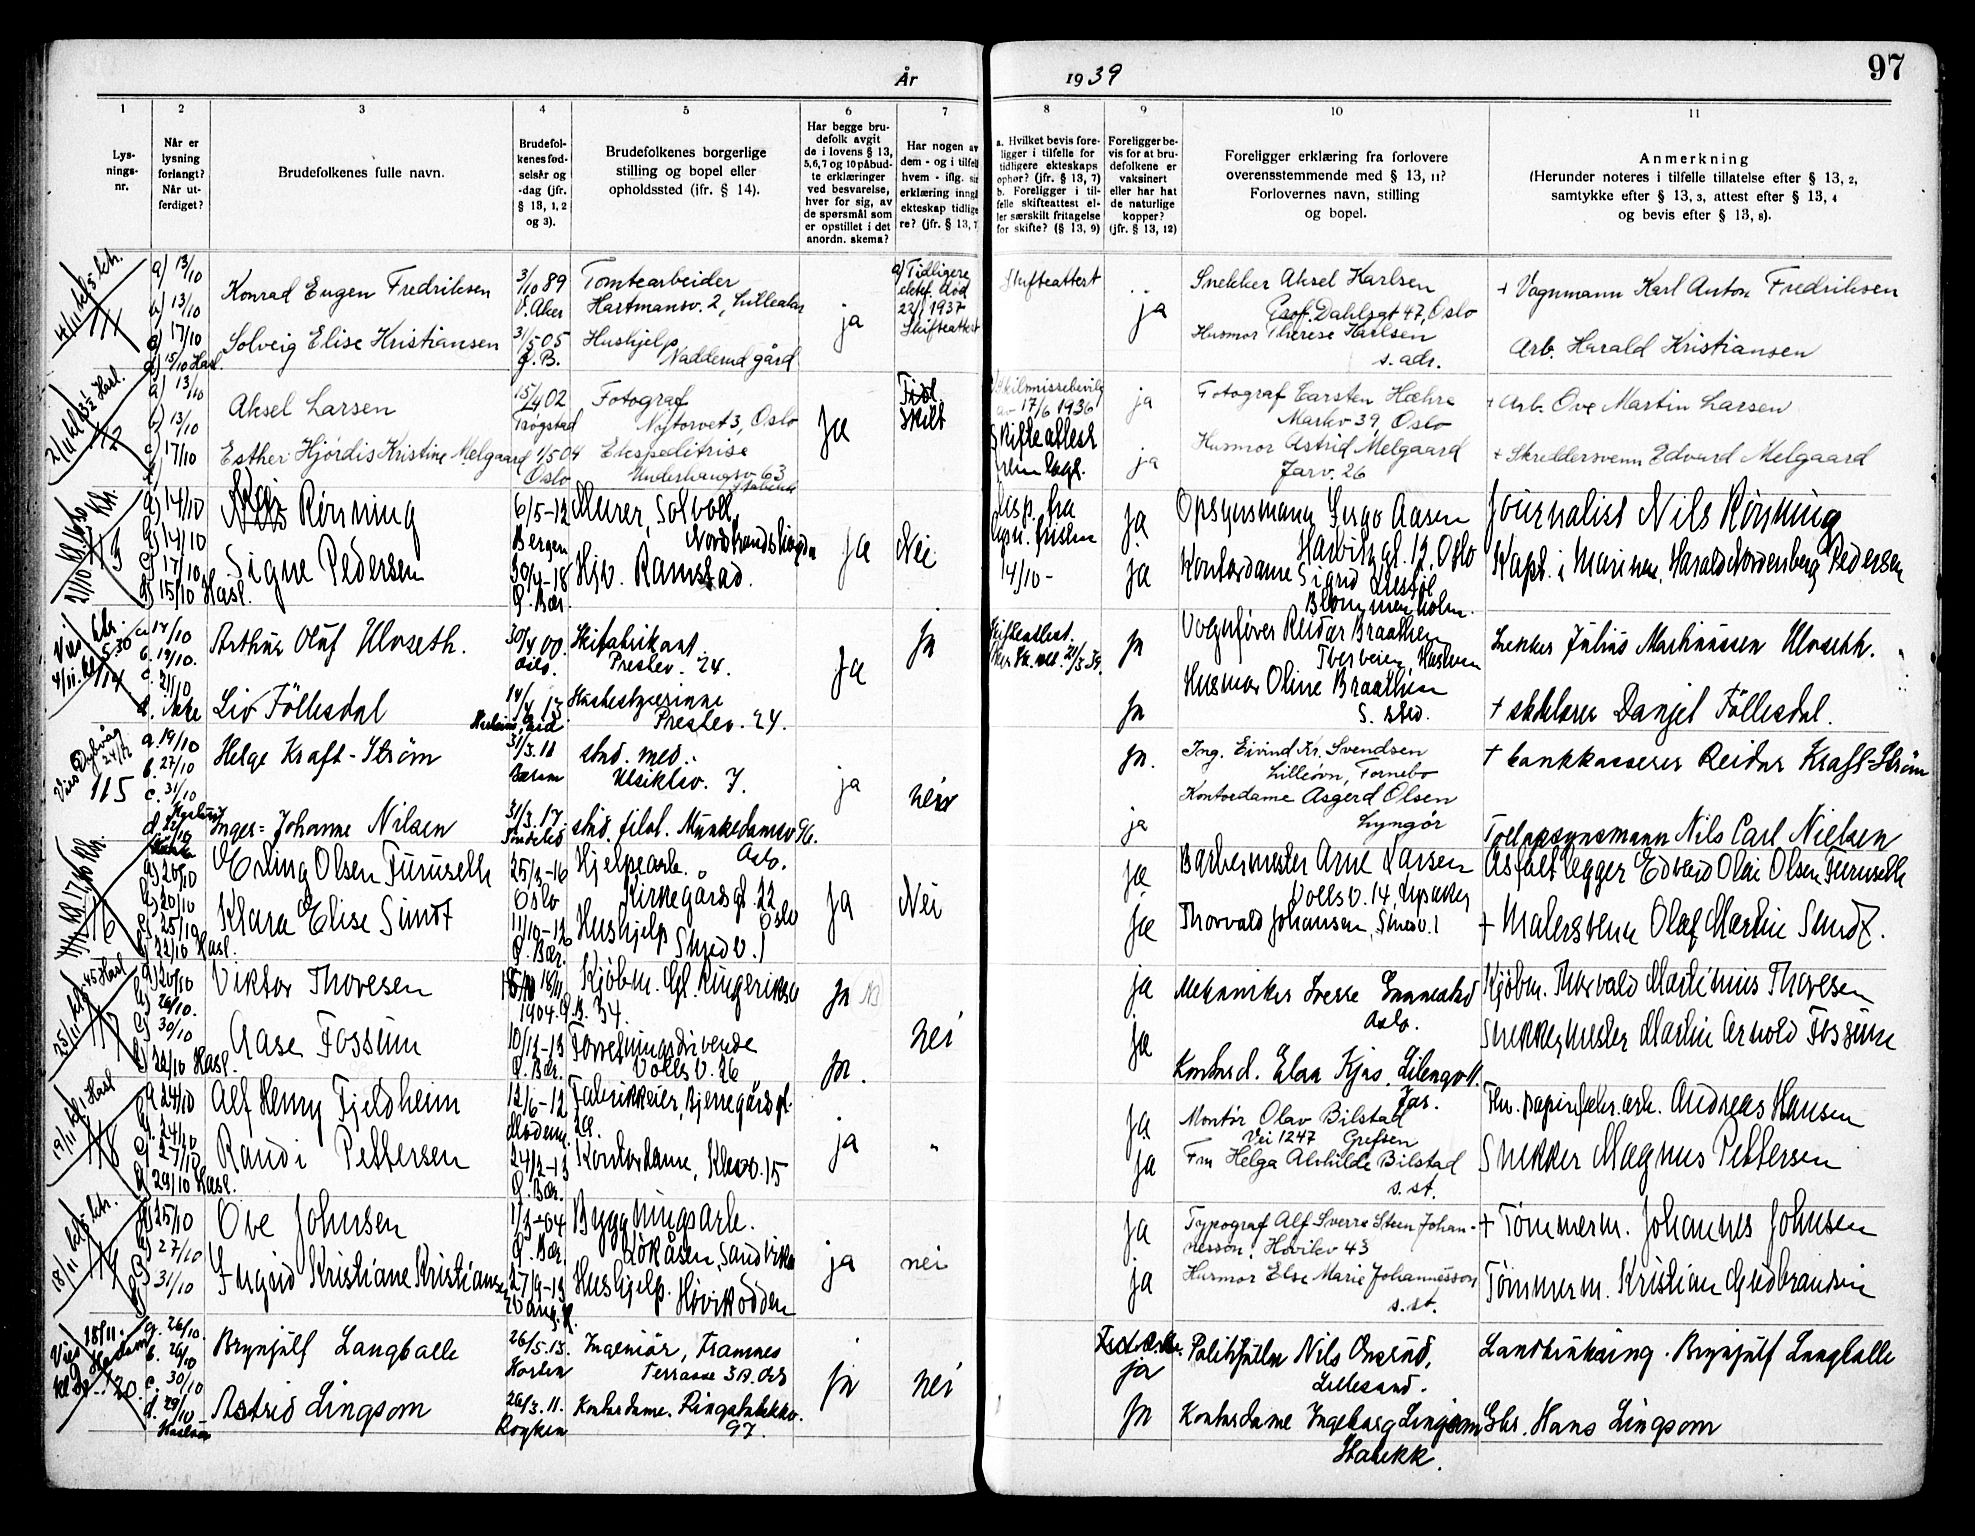 År 1939
97
1 2 3 4 5 6 7 8 9 10 11
Lys-
nings-
nr.
Når er
lysning
forlangt?
Når ut-
ferdiget?
Brudefolkenes fulle navn.
Brudefol-
kenes fød-
selsår og
-dag (jfr.
§ 13, 1, 2
og 3).
Brudefolkenes borgerlige
stilling og bopel eller
opholdssted (ifr. § 14).
Har begge bru-
defolk avgit
de i lovens § 13,
5, 6, 7 og 10 påbud-
te erklæringer
ved besvarelse,
hver for sig, av
de spørsmål som
er opstillet i det
anordn. skema?
Har nogen av
dem - og i tilfelle
hvem - iflg. sin
erklæring inngå
ekteskap tidlige
re? (jfr. § 13, 7
a. Hvilket bevis fore-
ligger i tilfelle for
tidligere ekteskaps
ophør? (jfr. § 13, 7)
b. Foreligger i til-
felle skifteattest el-
ler særskilt fritagelse
for skifte? (§ 13, 9)
Foreligger be-
vis for at bru-
defolkene er
vaksinert
eller har hat
de naturlige
kopper?
(jfr. § 13, 12)
Foreligger erklæring fra forlovere
overensstemmende med § 13, 11?
Forlovernes navn, stilling
og bopel.
Anmerkning
(Herunder noteres i tilfelle tillatelse efter § 13, 2,
samtykke efter § 13, 3, attest efter § 13, 4
og bevis efter § 13, 8).
a) 13/10
b) 13/10
c) 17/10
d) 15/10 Hasl.
Konrad Eugen Fredriksen
3/10 89
V. Aker
Tomtearbeider
Hartmansv. 2, Lilleaker
ja
a) Tidligere
ektef. død
22/1 1937
Skifteattest
Skifteattest
ja
Snekker Aksel Karlsen
Prof. Dahlsgt 47, Oslo
+ Vognmann Karl Anton Fredriksen
Solveig Elise Kristiansen
3/5 05
Ø. B.
Hushjelp
Nadderud gård
Husmor Therese Karlsen
s. adr.
Arb. Harald Kristiansen
a) 13/10
b) 13/10
c) 17/10
Aksel Larsen
15/4 02
Trøgstad
Fotograf
Nytorvet 3, Oslo
Ja
Tidl.
skilt
Skilsmissebevilg
av 17/6 1936
Skifteattest
ja
Fotograf Carsten Hæhre
Markv 39, Oslo
+ Arb. Ove Martin Larsen
Esther Hjørdis Kristine Melgaard
1/5 04
Oslo
Ekspeditrise
63
Stabekk
ja
Husmor Astrid Melgaard
Jarv. 26
+ Skreddersvenn Edvard Melgaard
a) 14/10
b) 14/10
c) 17/10
d) 15/10 Hasl.
Rønning
6/5-12
Bergen
Murer, Solvoll,
Nordstrandshøgda
Ja
Nei
Disp. fra
lysn. fristen
14/10 -
ja
Opsynsmann Aasen
Harbitzgt. 12, Oslo
Journalist Nils Rønning
Signe Pedersen
30/4-18
Ø. Bær.
Hjv. Ramstad.
ja
Kontordame Sigrid
Blommenholm.
Kapt. i Marinen, Harald Nordenberg Pedersen
114
a. 14/10
b. 19/10.
c. 21/10
d. Ikke
Arthur Oluf Ulvseth.
30/4 00.
Oslo.
Skifabrikant.
Prestev. 24.
Ja
Ja
Skifteattest.
21/3 39.
Ja
Vognfører Reidar Braathen
Tverveien, Haslum
Snekker Julius Mathiassen Ulvseth.
Liv Föllesdal
14/4 13.
Husbestyrerinne
Prestev. 24.
Ja
Husmor Oline Braathen
s. sted.
+ skolelærer Daniel Föllesdal.
115
a. 19/10
b. 27/10
c. 31/10
d. 22/10
Helge Kraft-Strøm
31/3. 11
Bærum
stud. med.
Ulsiklev. 7.
ja
nei
Ja.
Ing. Eivind Kr. Svendsen
Lilleøvn, Fornebo
+ bankkasserer Reidar Kraft-Strøm
Inger-Johanne Nilsen
31/3. 17.
Stud. filol. Munkedamsv 96.
Oslo.
ja
Kontordame Asgerd Olsen
Lyngør
Tollopsynsmann Nils Carl Nielsen
a) 20/10
b) 20/10
c) 25/10
d) 22/10 Hasl.
Erling Olsen Furuseth
25/3-16
Oslo
Hjelpearb.
Kirkegårdsgt. 22
Oslo
Ja
Nei
ja
Barbermester Arne Larsen
Vollsv. 14, Lysaker
Asfaltlegger Edvard Olai Olsen Furuseth
Klara Elise Sundt
11/10-12
Ø. Bær.
Hushjelp Snedv. 1
ja
Thorvald Johansen, Snedv. 1
+ Malersvenn Olaf Martin Sundt.
a) 20/10
b) 20/10.
c) 30/10
d) 22/10 Hasl.
Viktor Thoresen
18/11
1904. Ø. B.
Kjøbm. Gl. Ringeriksv
34.
Ja
nei
ja
Mekaniker Sverre
Oslo.
Kjøbm. Thorvald Martinius Thoresen
Aase Fossum
10/11-13
Ø. Bær.
Forretningsdrivende
Vollsv. 26
Ja.
ja
Kontord. Elsa Kjos. Lilengvn.
Jar.
Snekkermester Martin Arnold Fossum
a 24/10
b. 24/10
c) 27/10
d) 29/10 Hasl.
Alf Henry Fjeldheim
12/6-12
Modum.
Fabrikkeier, Bjerregårdsgt.
ja
"
Ja
Montør Olav Bilstad
Vei 1247 Grefsen
Thv. papirfabr.arb. Andreas Hansen
Randi Pettersen
24/2-13
Ø. Bær.
Kontordame, Kleivv. 15
ja
Fru Helga Alvhilde Bilstad
s. st.
Snekker Magnus Pettersen
25/10
27/10
31/10
Ove Johnsen
1/3-04
Ø. Bær.
Bygningsarb.
Kokåsen, Sandvika
ja
nei
ja
Typograf Alf Sverre Steen Johan-
nesson, Høvikv 43
+ Tømmerm. Johannes Johnsen
Ingrid Kristiane Kristiansen
27/9-13
Hushjelp. Høvikodden
ja
Husmor Else Marie Johannesson
s. st.
Tømmerm. Kristian Gudbrandsen
Vies 18/11.
a. 26/10.
b. 26/10
c. 30/10
d. 29/10
Haslum
Brynjulf Langballe
26/5. 13.
Horten
Ingeniør, Framnes
Terrasse 3A. Oslo
Ja
nei
ja
Politifullm Nils Onsrud,
Lillesand.
Landbruksing. Brynjulf Langballe
Astrid Lingsom
26/3. 11.
Røyken
Kontordame. Ringstabekkv.
97.
Ja
Kontordame Ingeborg Lingsom
Stabekk.
Gbr. Hans Lingsom